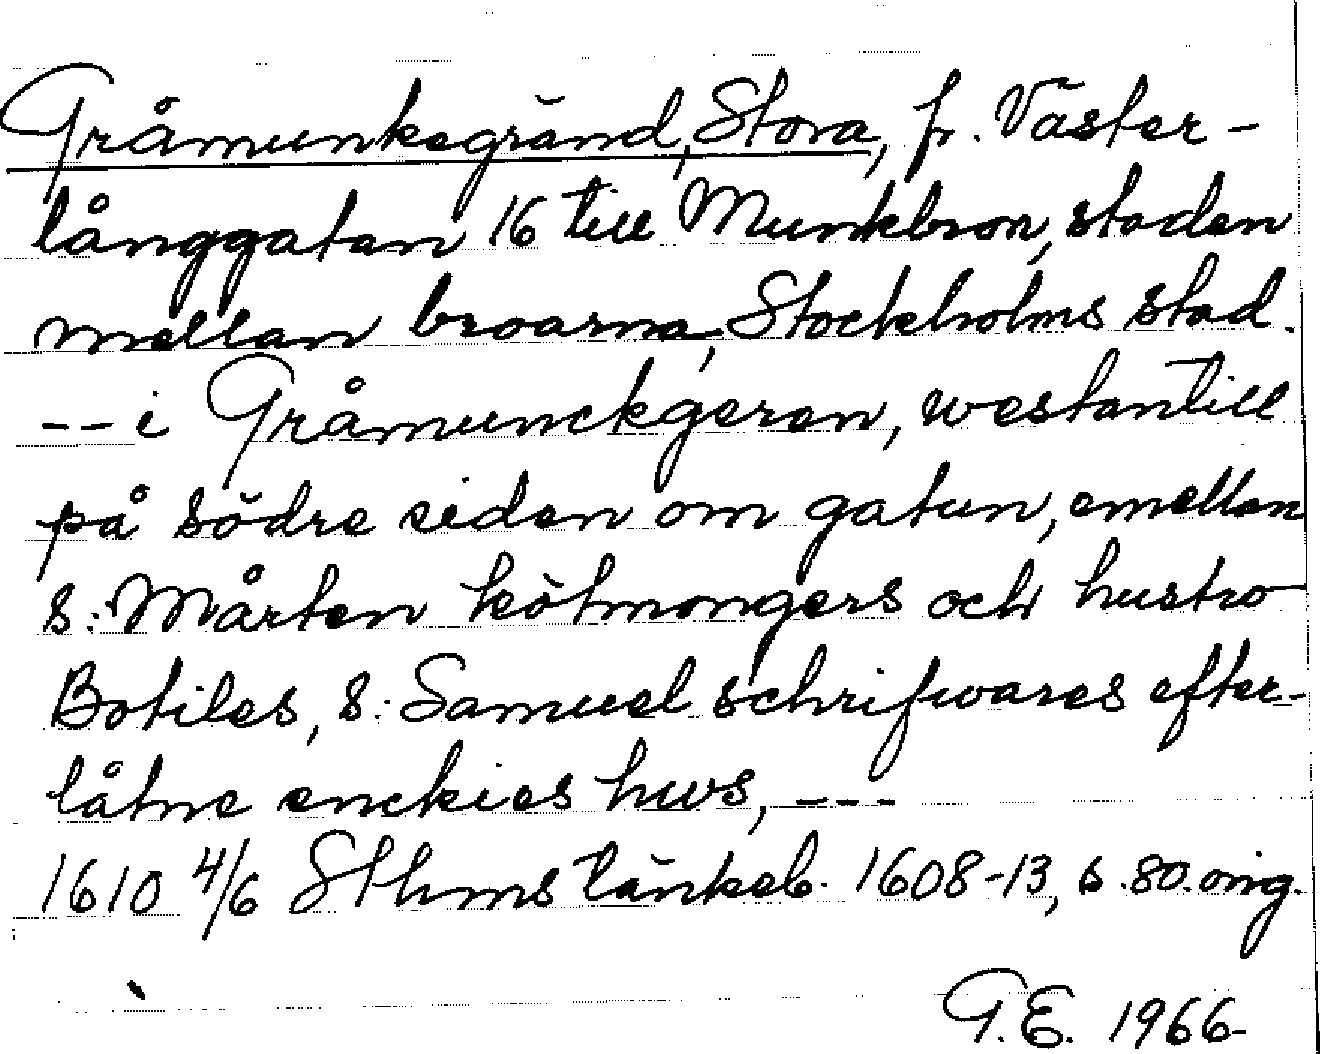 Gråmunkegränd, Stora, fr. Väster-
långgatan 16 till Munkbron, staden
mellan broarna, Stockholms stad.
-- i Gråmunckgeren, westantill
på södre siden om gatun, emellan
s: Mårten kötmongers och hustro
Botiles, s: Samuel schrifwares efter-
låtne enckies hws, ---
1610 4/6 Sthms tänkeb. 1608-13, s. 80. orig.
G.E. 1966